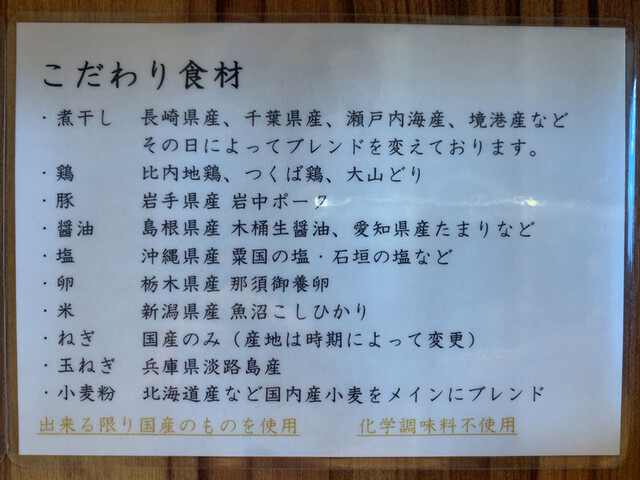 こだわり食材
・煮干し 長崎県産、千葉県産、瀬戸内海産、境港産など
その日によってブレンドを変えております。
・鶏 比内地鶏、つくば鶏、大山どり
・豚 岩手県産 岩中ポーク
・醤油 島根県産 木桶生醤油、愛知県産たまりなど
・塩 沖縄県産 粟国の塩・石垣の塩など
・卵 栃木県産 那須御養卵
・米 新潟県産 魚沼こしひかり
・ねぎ 国産のみ（産地は時期によって変更）
・玉ねぎ 兵庫県淡路島産
・小麦粉 北海道産など国内産小麦をメインにブレンド
出来る限り国産のものを使用 化学調味料不使用